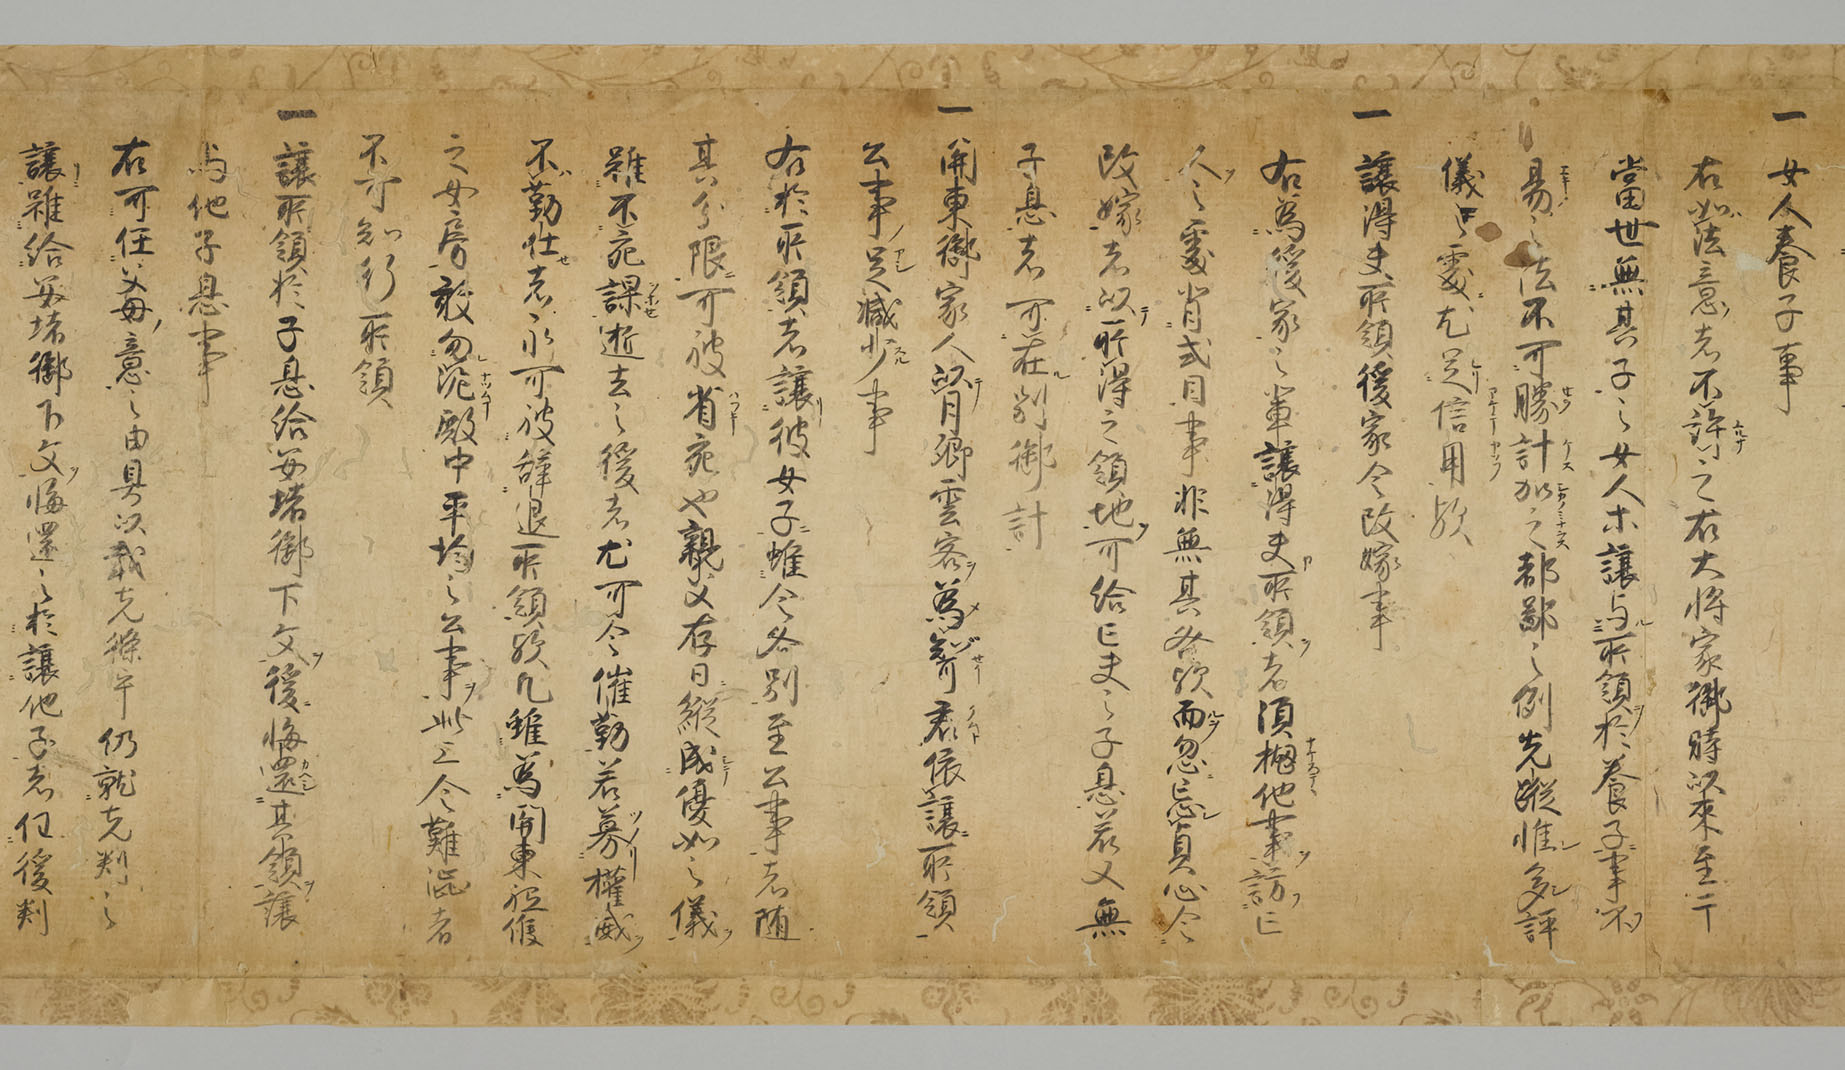 一 女人養子事
右如法意者不許之右大将家御時以来至于
當世無其子之女人木譲与所領於養子事不
易之法不可勝計加之都鄙之例先蹤惟多評
儀之處尤足信用歟
一 譲得夫所領後家令改嫁事
右為後家之輩譲得夫所領者須抛他事訪亡
人之處背式目事非無其咎歟而忽忘貞心令
改嫁者以所得之領地可給亡夫之子息若又無
子息者可在別御計
一 関東御家人以月卿雲客為聟君依譲所領
公事足減少事
右於所領者譲彼女子雖令各別至公事者随
其分限可被省宛也親父存日縦成優如之儀
雖不宛課逝去之後者尤可令催勤若募權威
不勤仕者永可被辞退所領歟凡雖為関東祗候
之女房敢勿泥殿中平均之公事此上令難澁者
不可知行所領
一 譲所領於子息給安堵御下文後悔還其領譲
与他子息事
右可任父母意之由具以載先條畢仍就先判之
譲雖給安堵御下文悔還之於譲他子者任後判